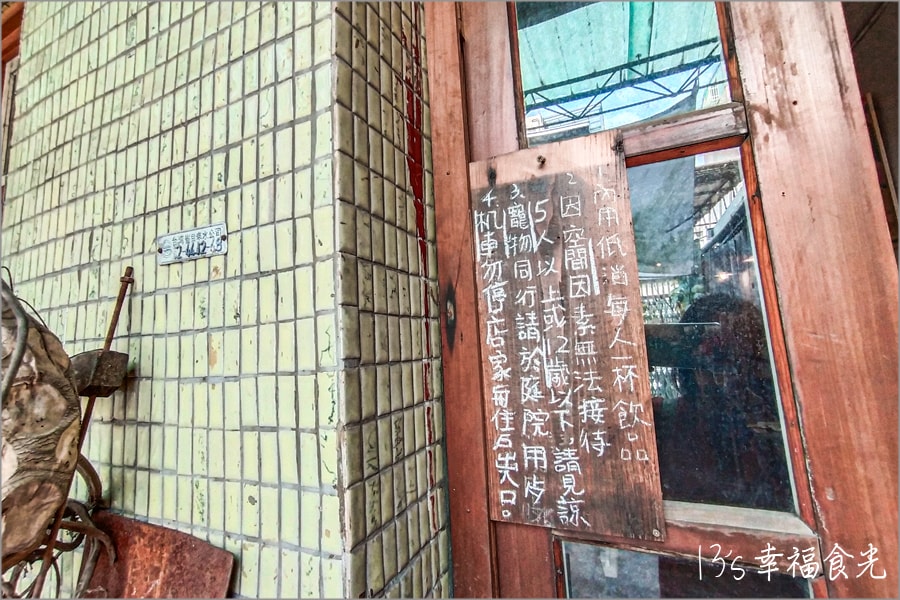 1.內用低消每人一杯飲品
2.因空間因素無法接待
5人以上或12歲以下,請見諒
3.寵物同行請於庭院用
4.机車勿停店家每住戶出入口。
13's幸福食光